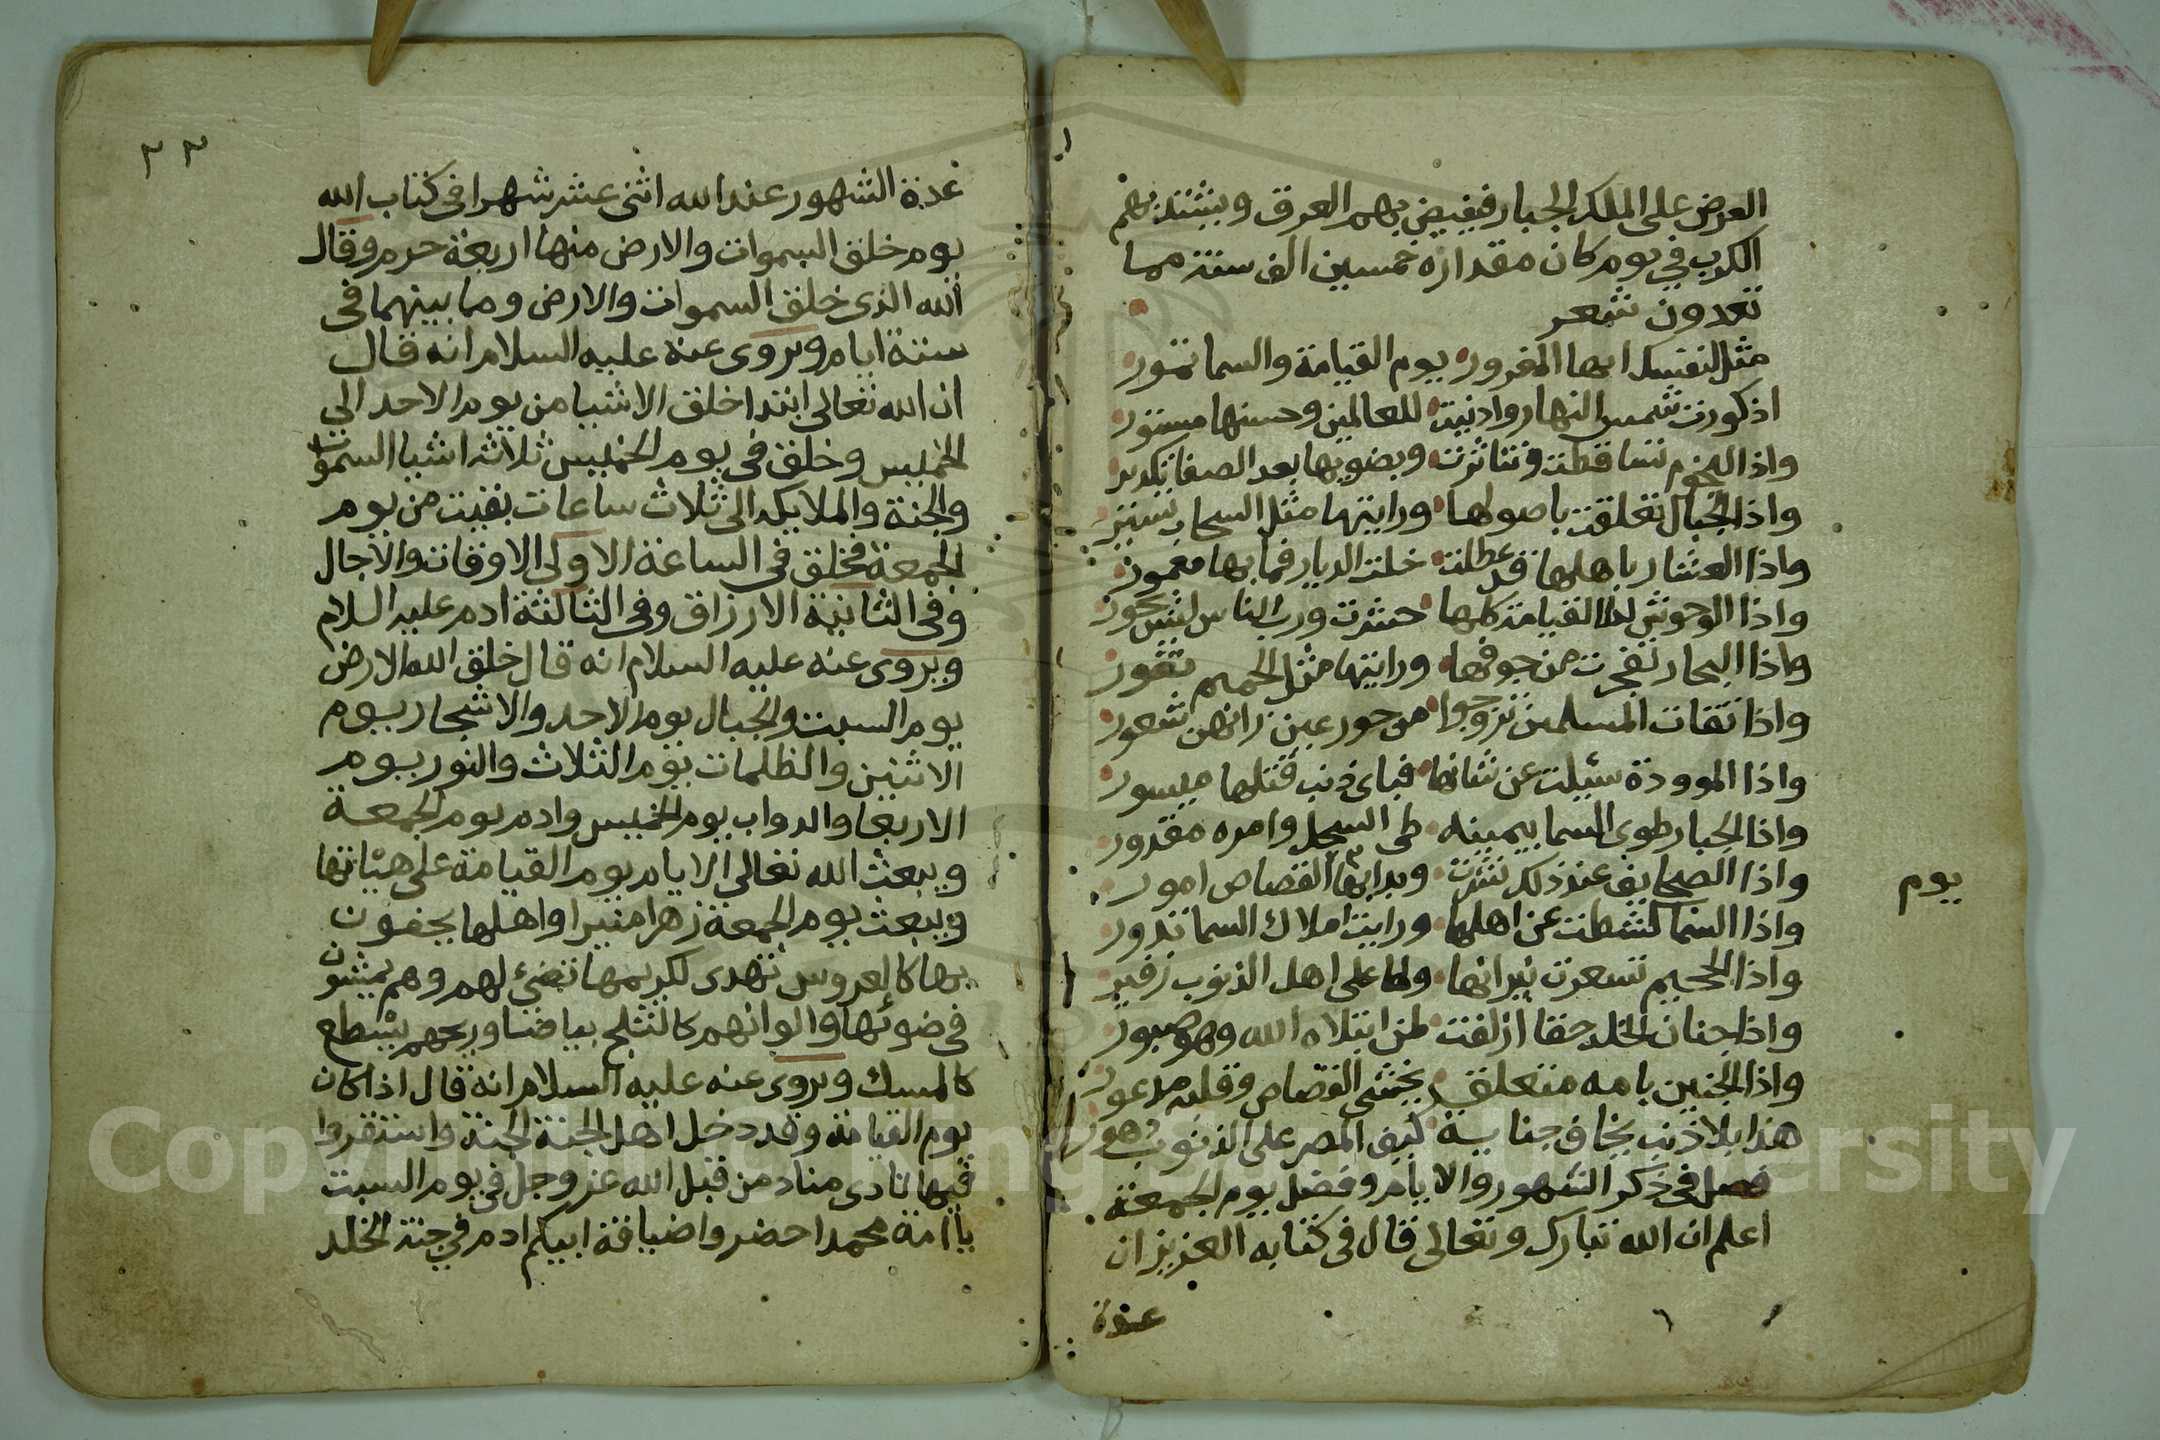 العرض على الملك الجبار فيفيض بهم العرق ويشتد بهم
الكرب في يوم كان مقداره خمسين الف سنة مما
تعدون شعر
مثل لنفسك ايها المغرور يوم القيامة والسما تمور
اذ كورت شمس النهار وادنيت للعالمين وحسنها مستور
واذا النجوم تساقطت وتناثرت وبضويها بعد الصفا تكدير
واذا الجبال تعلقت باصولها ورايتها مثل السحاب تسير
واذا العشار باهلها قد عطلت خلت الديار فما بها معمور
واذا الوحوش لدا القيامة كلها حشرت ورب الناس
واذا البحار تفجرت من جوفها ورايتها مثل الحميم تفور
واذا تقات المسلمين تزوجوا من حور عين زانهن شعور
واذا الموودة سئيلت عن شانها فباى ذنب قتلها ميسور
واذا الجبار طوى السما بيمينه طي السجل وامره مقدور
واذا الصحايف عند ذلك نشرت القصاص امور
يوم
واذا السما كشطت عن اهلها ورايت املاك السما تدور
واذا الجحيم تسعرت نيرانها ولها على اهل الذنوب زفير
واذا جنان الخلد حقا ازلفت ابتلاه الله وهو صبور
واذا الجنين بامه متعلق يخشى القصاص وقلبه مدعور
هذا بلا ذنب يخاف جنايه كيف المصر على الذنوب دهور
فصل في ذكر الشهور والايام وفضل يوم الجمعة
اعلم ان الله تبارك وتعالى قال في كتابه العزيز ان
عدة
٢٣
عدة الشهور عند الله اثنى عشر شهرا في كتاب الله
يوم خلق السموات والارض منها اربعة حرم وقال
الله الذى خلق السموات والارض وما بينهما في
ستة ايام ويروى عنه عليه السلام انه قال
ان الله تعالى ابتدا خلق الاشيا من يوم الاحد الى
الخميس وخلق في يوم الخميس ثلاثه اشيا السموت
والجنة والملايكه الى ثلاث ساعات بقيت من يوم
الجمعة فخلق في الساعة الاولى الاوقات والاجال
وفي الثانية الارزاق وفي الثالثة ادم عليه السلام
ويروى عنه عليه السلام انه قال خلق الله الارض
يوم السبت والجبال يوم الاحد والاشجار يوم
الاثنين والظلمات يوم الثلاث والنور يوم
الاربعا والدواب يوم الخميس وادم يوم الجمعة
ويبعث الله تعالى الايام يوم القيامة على هياتها
ويبعث يوم الجمعة زهرا منيرا واهلها يحفون
بها كالعروس تهدى لكريمها تضئ لهم وهم يمشون
في ضوئها والوانهم كالثلج بياضا وريحهم يسطع
كالمسك ويروى عنه عليه السلام انه قال اذا كان
يوم القيامة وقد دخل اهل الجنة الجنة واستقروا
فيها نادى مناد من قبل الله عز وجل في يوم السبت
يا امة محمد احضروا ضيافة ابيكم ادم في جنة الخلد
Copyright © King University